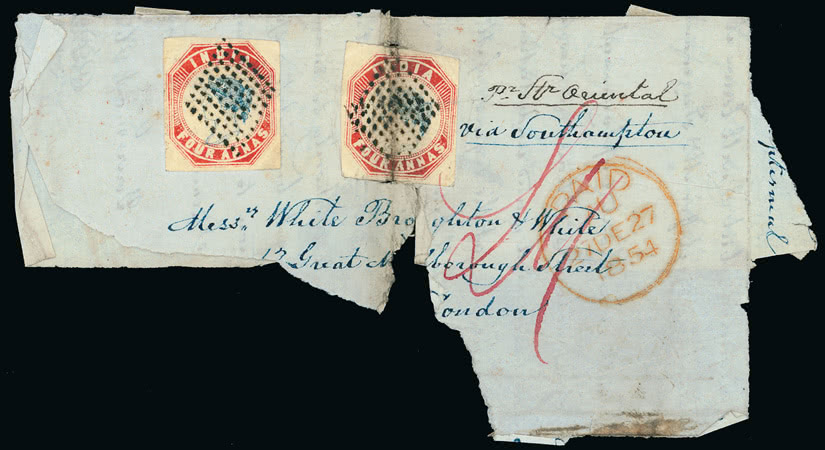 INDIA
FOUR ANNAS
INDIA
FOUR ANNAS
Pr Str Oriental
via Southampton
Messrs White Bro ghton & White
17 Great M lborough Street
London
PAID
DE 27
1854